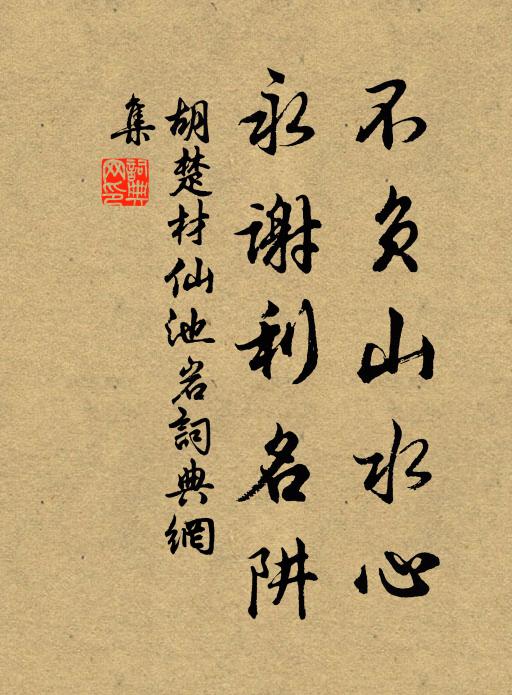 不負山水心
永謝利名阱
胡楚材仙池岩詞典網
集
詞典
网印